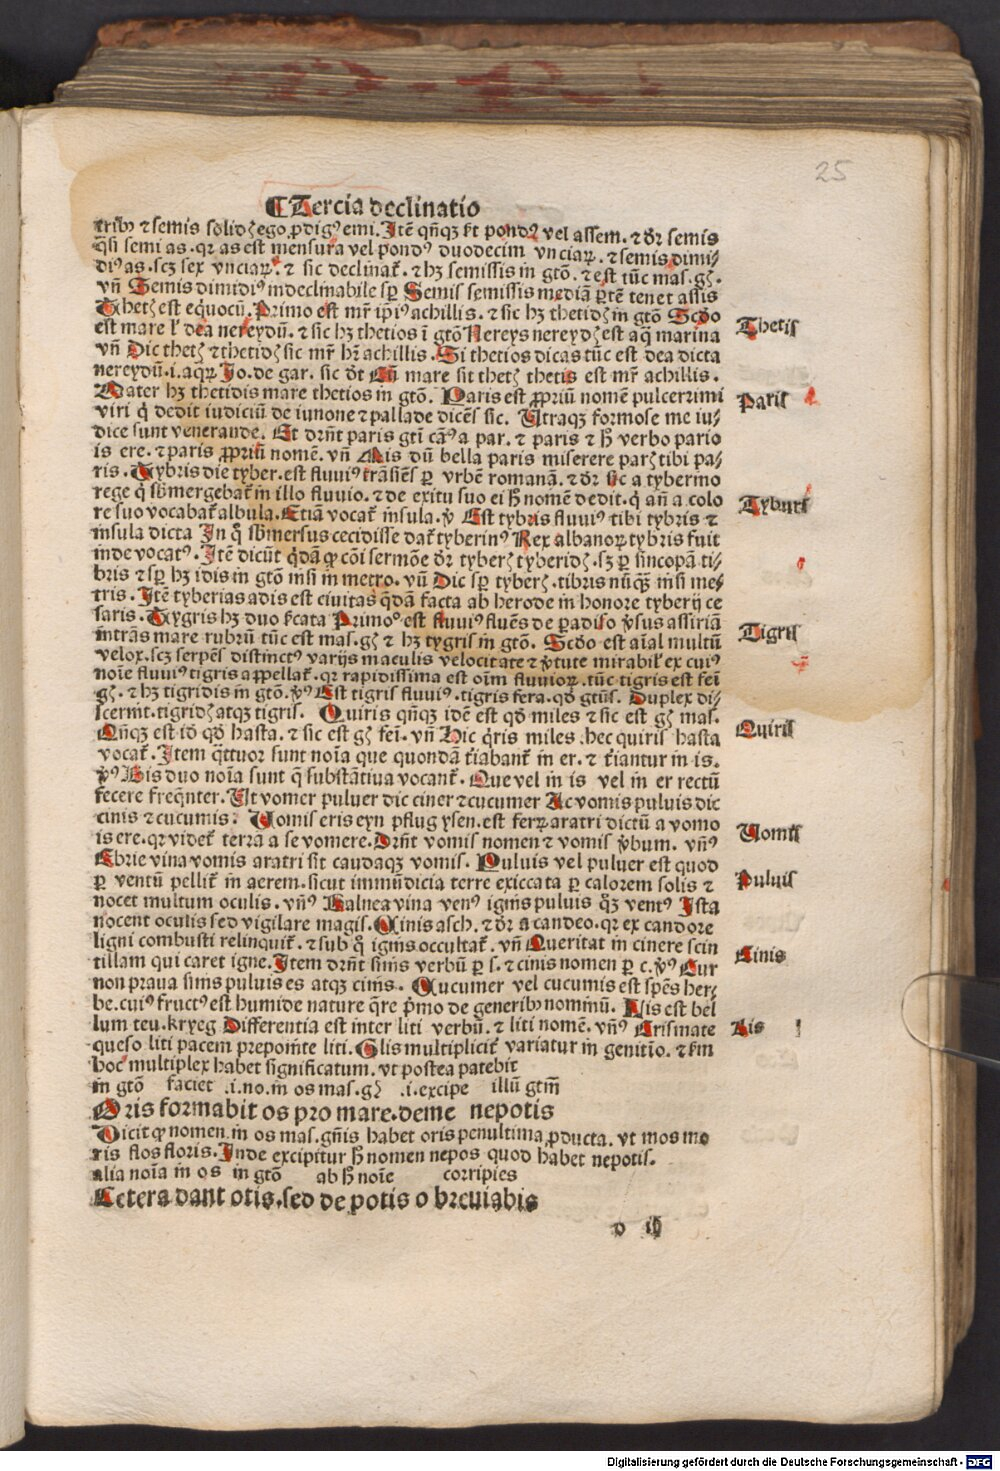 25
¶ Tercia declinatio
tribꝰ ⁊ semis solidꝫ ego ꝓdigꝰ emi. Itē qñqꝫ ſt pondꝰ vel assem. ⁊ dr̄ semis
q̄si semi as. qꝛ as est mensura vel pondꝰ duodecim vnciaꝝ. ⁊ semis dimi⸗
diꝰ as. scꝫ sex vnciaꝝ. ⁊ sic declinat̄. ⁊ hꝫ semissis in gtō. ⁊ est tūc mas. gꝫ.
vñ Semis dimidiꝰ indeclinabile sꝑ Semis semissis mediā ꝑtē tenet assis
Thetꝫ est eq̇uocū. Primo est mr̄ ip̄iꝰ achillis. ⁊ sic hꝫ thetidꝫ in gtō Scd̄o
est mare ł dea nereydū. ⁊ sic hꝫ thetios ī gtō Nereys nereydꝫ est aq̄ marina
vñ Dic thetꝫ ⁊ thetidꝫ sic mr̄ hꝫ achillis. Si thetios dicas tūc est dea dicta
nereydū. i. aqꝝ Jo. de gar. sic dt̄ Cū mare sit thetꝫ thetis est mr̄ achillis.
Mater hꝫ thetidis mare thetios in gtō. Paris est ꝓpriū nomē pulcerrimi
viri q̇ dedit iudiciū de iunone ⁊ pallade dicēs sic. Utraqꝫ formose me iu⸗
dice sunt venerande. Et dr̄nt paris gtī cāꝰ a par. ⁊ paris ⁊ h̄ verbo pario
is ere. ⁊ paris ꝓpriū nomē. vñ Ais dū bella paris miserere parꝫ tibi pa⸗
ris. Tybris die tyber. est fluuiꝰ trāsiēs ꝑ vrbē romanā. ⁊ dr̄ sic a tybermo
rege q̇ sb̄mergebat̄ in illo fluuio. ⁊ de exitu suo ei h̄ nomē dedit. q̇ añ a colo
re suo vocabat̄ albula. Etiā vocat̄ insula. ꝟ Est tybris fluuiꝰ tibi tybris ⁊
insula dicta In q̇ sb̄mersus cecidisse dat̄ tyberinꝰ Rex albanoꝝ tybris fuit
inde vocatꝰ. Itē dicūt q̇dā ꝙ cōi sermōe dr̄ tyberꝫ tyberidꝫ. sꝫ ꝑ sincopā ti⸗
bris ⁊ sꝑ hꝫ idis in gtō nisi in metro. vñ Dic sꝑ tyberꝫ. tibris nūqꝫ nisi me⸗
tris. Itē tyberias adis est ciuitas q̄dā facta ab herode in honore tyberij ce
saris. Tygris hꝫ duo ſcata Primoꝰ est fluuiꝰ fluēs de ꝑadiso ꝟsus assiriā
intrās mare rubrū tūc est mas. gꝫ ⁊ hꝫ tygris in gtō. Scd̄o est aīal multū
velox. scꝫ serpēs distinctꝰ varijs maculis velocitate ⁊ ꝟtute mirabiľ ex cuiꝰ
noīe fluuiꝰ tigris appellat̄. qꝛ rapidissima est oīm fluuioꝝ. tūc tigris est feī
gꝫ. ⁊ hꝫ tigridis in gtō. ꝟꝰ Est tigris fluuiꝰ. tigris fera. qd̄ gtūs. Duplex di⸗
scernit. tigridꝫ atqꝫ tigris. Quiris qñqꝫ idē est qd̄ miles ⁊ sic est gꝫ mas.
Qñqꝫ est id qd̄ hasta. ⁊ sic est gꝫ fei. vñ Hic q̇ris miles hec quiris hasta
vocat̄. Item q̄ttuor sunt noīa que quondā ťiabant̄ in er. ⁊ ťiantur in is.
ꝟꝰ His duo noīa sunt q̄ substātiua vocant̄. Que vel in is vel in er rectū
fecere freq̄nter. Ut vomer puluer dic ciner ⁊ cucumer Ac vomis puluis dic
cinis ⁊ cucumis. Uomis eris eyn pflug ysen. est ferꝝ aratri dictū a vomo
is ere. qꝛ videt̄ terrā a se vomere. Dr̄nt vomis nomen ⁊ vomis ꝟbum. vñꝰ
Ebrie vina vomis aratri sit caudaqꝫ vomis. Puluis vel puluer est quod
ꝑ ventū pellit̄ in aerem. sicut immūdicia terre exiccata ꝑ calorem solis ⁊
nocet multum oculis. vñꝰ Balnea vina venꝰ ignis puluis q̄ꝫ ventꝰ Ista
nocent oculis sed vigilare magis. Cinis asch. ⁊ dr̄ a candeo. qꝛ ex candore
ligni combusti relinquit̄. ⁊ sub q̇ ignis occultat̄. vñ Queritat in cinere scin
tillam qui caret igne. Item dr̄nt sinis verbū ꝑ s. ⁊ cinis nomen ꝑ c. ꝟꝰ Cur
non praua sinis puluis es atqꝫ cinis. Cucumer vel cucumis est spēs her⸗
be. cuiꝰ fructꝰ est humide nature q̄re ṗmo de generibꝰ nominū. Lis est bel
lum teu. kryeg Differentia est inter liti verbū. ⁊ liti nomē. vñꝰ Crismate
queso liti pacem preponite liti. Glis multiplicit̄ variatur in genitīo. ⁊ ſm
hoc multiplex habet significatum. vt postea patebit
in gtō faciet .i. no. in os mas. gꝫ .i. excipe illū gtm̄
Oris formabit os pro mare. deme nepotis
Dicit ꝙ nomen. in os mas. gn̄is habet oris penultima ꝓducta. vt mos mo
ris flos floris. Inde excipitur h̄ nomen nepos quod habet nepotis.
alia noīa in os in gtō ab h̄ noīe corripies
Cetera dant otis. sed de potis o breuiabis
d iij
Thetis
Paris
Tyburs
Tigris
Quiris
Uomis
Puluis
Cinis
Lis
Digitalisierung gefördert durch die Deutsche Forschungsgemeinschaft - DFG